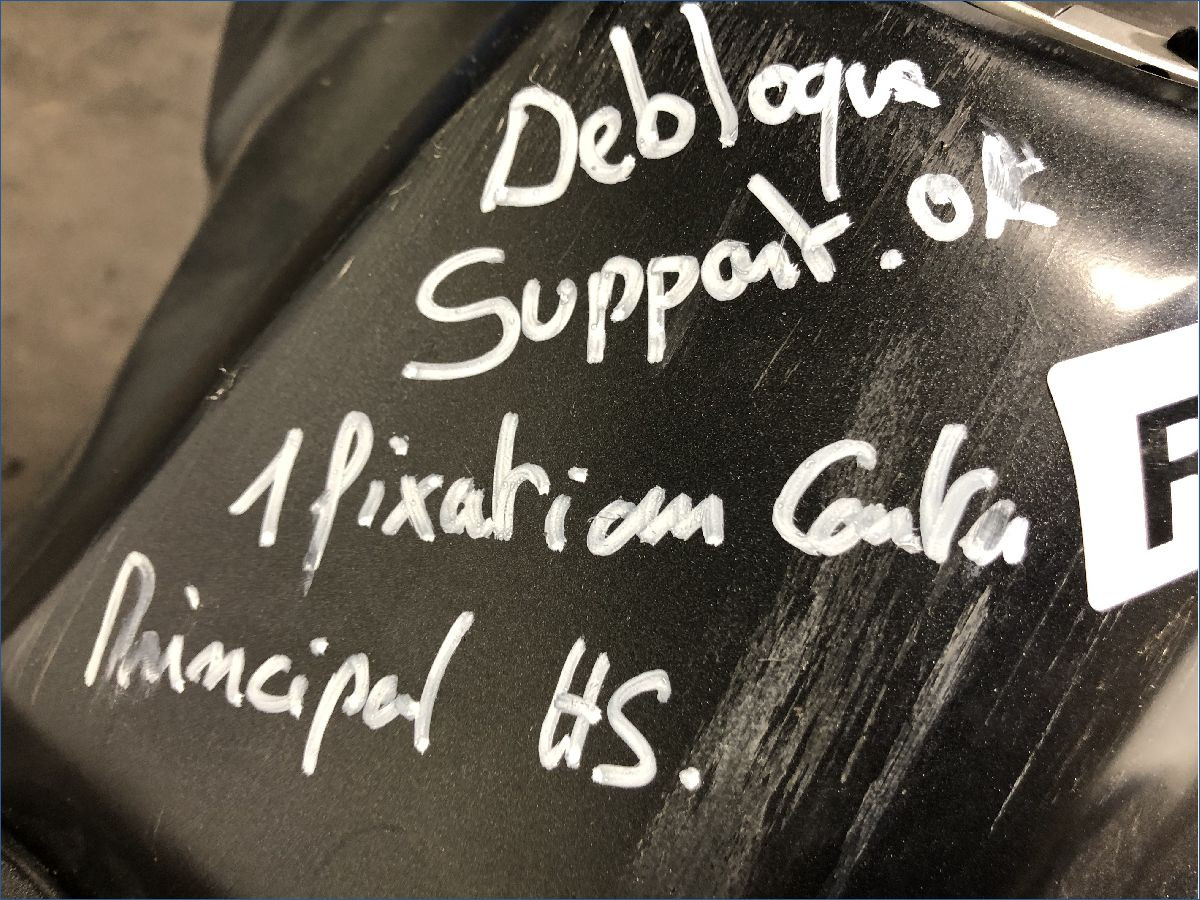 Debloque
Support. OK
1 fixation Contre
Principal HS.